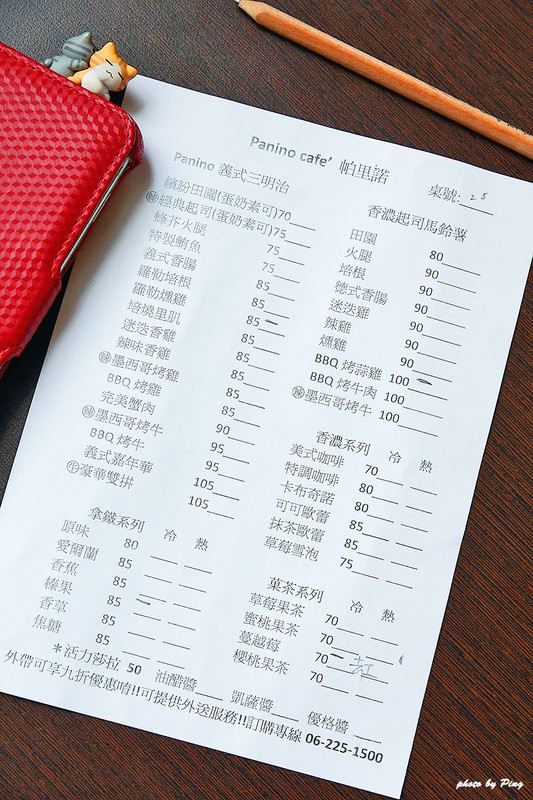 Panino cafe' 帕里諾
桌號:____ 28
Panino 義式三明治
繽紛田園(蛋奶素可)70____
㊙經典起司(蛋奶素可)75____
蜂芥火腿 75____
特製鮪魚 75____
義式香腸 85____
羅勒培根 85____
羅勒燻雞 85____
培燒里肌 85____
迷迭香雞 85____
辣味香雞 85____
㊙墨西哥烤雞 85____
BBQ 烤雞 85____
完美蟹肉 90____
㊙墨西哥烤牛 95____
BBQ 烤牛 95____
義式嘉年華 105____
㊕豪華雙拼 105____
香濃起司馬鈴薯
田園 80____
火腿 90____
培根 90____
德式香腸 90____
迷迭雞 90____
辣雞 90____
燻雞 90____
BBQ 烤蒜雞 100____
BBQ 烤牛肉 100____
㊙墨西哥烤牛 100____
香濃系列 冷 熱
美式咖啡 70____ ____
特調咖啡 80____ ____
卡布奇諾 80____ ____
可可歐蕾 85____ ____
抹茶歐蕾 85____ ____
草莓雪泡 75____ ____
拿鐵系列 冷 熱
原味 80 ____ ____
愛爾蘭 85 ____ ____
香蕉 85 ____ ____
榛果 85 ____ ____
香草 85 ____ ____
焦糖 85 ____ ____
菓茶系列 冷 熱
草莓果茶 70____ ____
蜜桃果茶 70____ ____
蔓越莓 70____ ____ 紅
櫻桃果茶 70____ ____
*活力莎拉 50 油醋醬____ 凱薩醬____ 優格醬____
外帶可享九折優惠唷!!可提供外送服務!!訂購專線 06-225-1500
photo by Ping